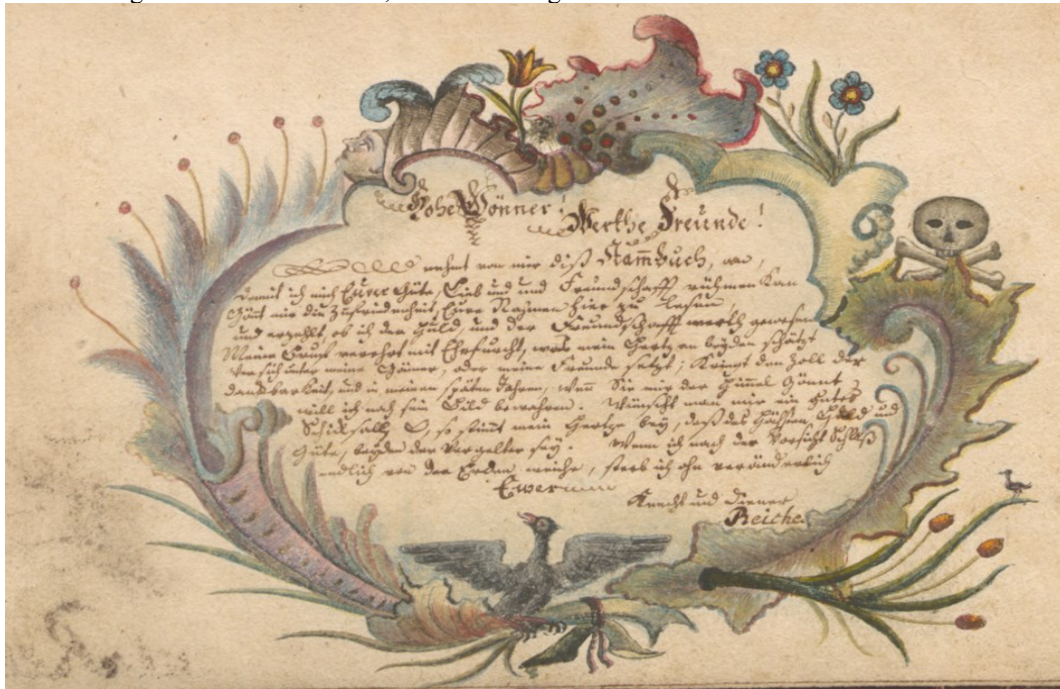 Hohe Gönner! Werthe Freunde!
nehmt von mir diß Stam̄buch, an,
damit ich mich Eurer Güte, Lieb und und Freundschafft rühmen kan
Gönt mir die Zufriedenheit, Eure Nahmen hier zu lesen,
und erzehlt, ob ich der Huld, und der Freundschafft werth gewesen
Meine Brust verehrt mit Ehrfurcht, was mein Hertz an beyden schätzt
Wer sich unter meine Gönner, oder meine Freunde setzt; kriegt den Zoll der
danckbarkeit, und in meinen späten Jahren, wen̄ Sie mir der Himmel Gönnt,
will ich noch sein Bild bewahren. Wünscht man mir ein Gutes
Schicksall, O, so stimt mein Hertze bey, daß des Höchsten Huld und
Güte, beyden der Vergelter sey. Wenn ich nach der Vorsicht Schluß
endlich von der Erden weiche, sterb ich ohn veränderlich
Euer
Knecht und Diener
Reiche.